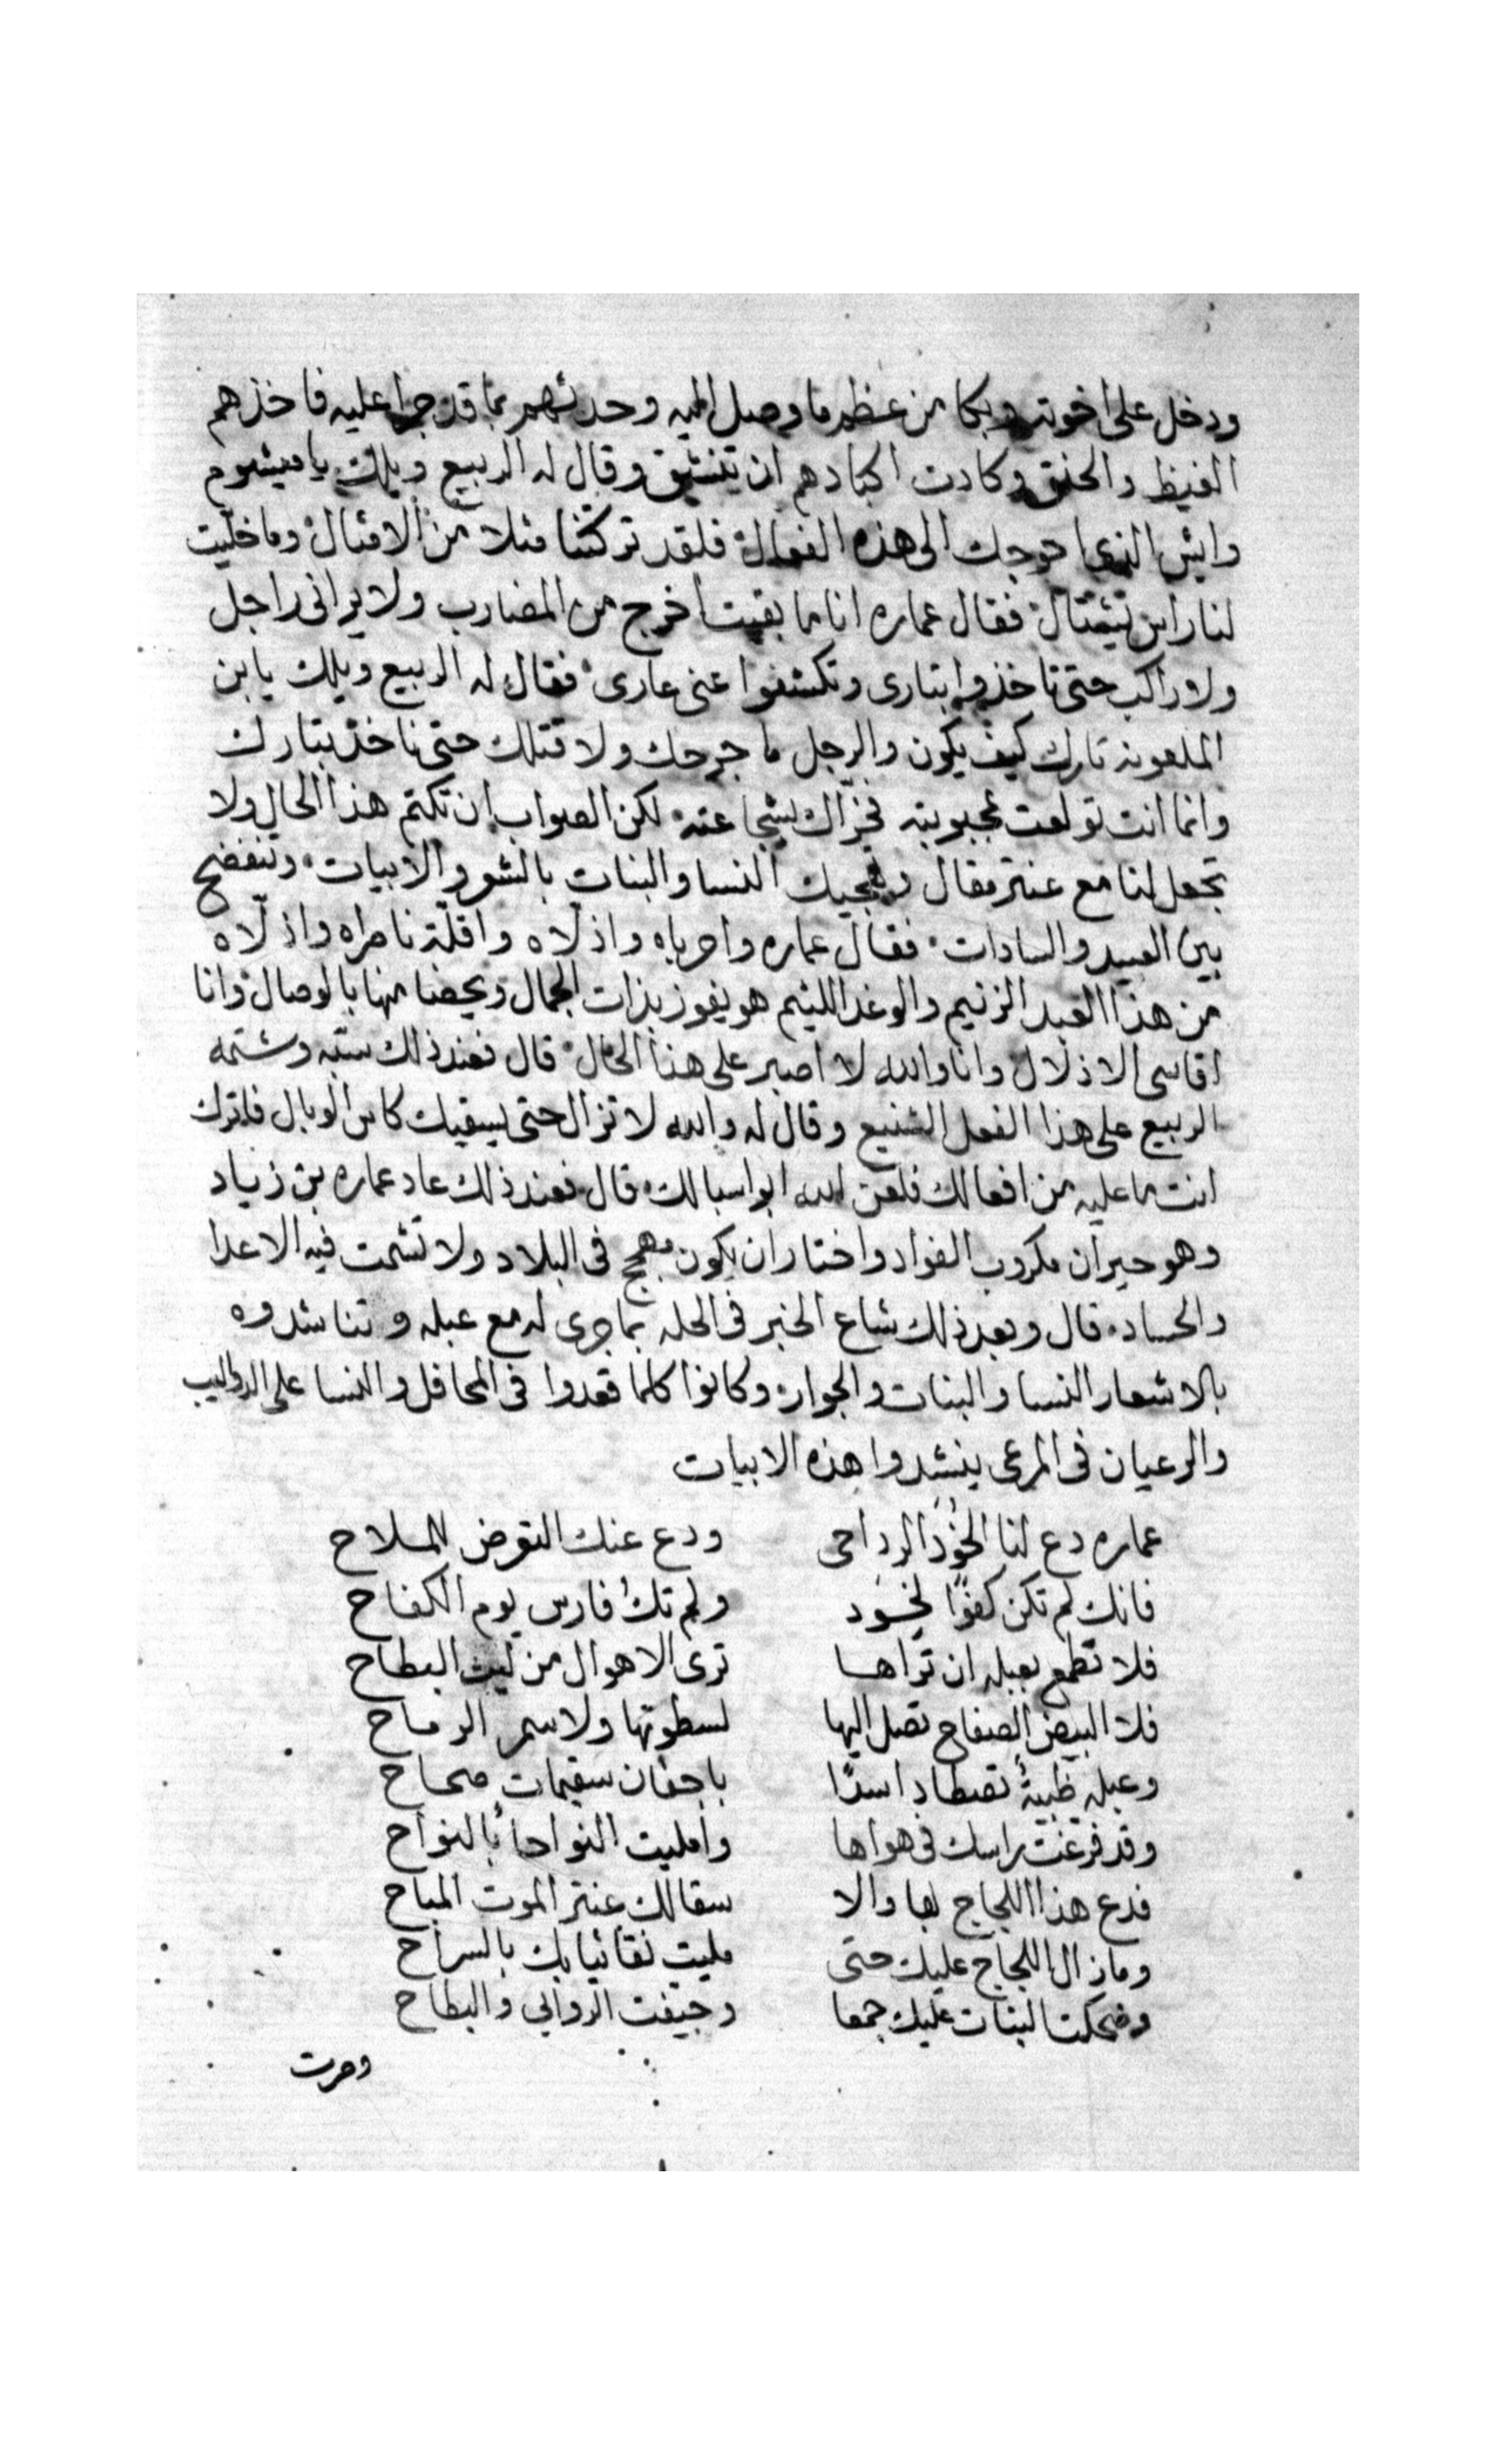 ودخل على اخوته وبكا من عظم ما وصل اليه وحدثهم بما قد جرا عليه فاخذهم
الغيظ والحنق وكادت اكبادهم ان تنشق وقال له الربيع ويلك يا ميشوم
وايش الذى احوجك الى هذه الفعال فلقد تركتنا مثلا من الامثال وما خليت
لنا راس تنشال فقال عماره انا ما بقيت اخرج من المضارب ولا يرانى راجل
ولا راكب حتى تاخذوا بتارى وتكشفوا عنى عارى فقال له الربيع ويلك يا بن
الملعونه تارك كيف يكون والرجل ما جرحك ولا قتلك حتى ناخذ بتارك
وانما انت تولعت بمحبوبته فخزاك بشجاعته لكن الصواب ان تكتم هذا الحال ولا
تجعل لنا مع عنتر مقال وتهجيك النسا والبنات بالشعر والابيات وتنفضح
بين العبيد والسادات فقال عماره واحرباه واذلاه واقلة ناصراه واذلاه
من هذا العبد الزنيم والوغد اللئيم هو يفوز بذات الجمال ويحضا منها بالوصال وانا
اقاسى الاذلال وانا والله لا اصبر على هذا الحال قال فعند ذلك سبه وشتمه
الربيع على هذا الفعل الشنيع وقال له والله لا تزال حتى يسقيك كاس الوبال فاترك
انت ما عليه من افعالك فلعن الله ابو اسبالك قال فعند ذلك عاد عماره بن زياد
وهو حيران مكروب الفواد واختار ان يكون مهجج فى البلاد ولا تشمت فيه الاعدا
والحساد قال وبعد ذلك شاع الخبر فى الحله بما جرى له مع عبله وتناشدوه
بالاشعار النسا والبنات والجوار وكانوا كلما قعدوا فى المحافل والنسا على الدواليب
والرعيان فى المرعى ينشدوا هذه الابيات
عماره دع لنا الخود الرداحى ودع عنك التعرض للملاح
فانك لم تكن كفوًا لخود ولم تك فارس يوم الكفاح
فلا تطمع بعبله ان تراها ترى الاهوال من ليث البطاح
فلا البيض الصفاح تصل اليها لسطوتها ولا سمر الرماح
وعبله ظبيةٌ تصطاد اسدًا باجفان سقيمات صحاح
وقد فرغت راسك فى هواها وامليت النواحا بالنواح
فدع هذا اللجاج بها والا سقالك عنتر الموت المباح
وما زال اللجاج عليك حتى مليت نقا ثيابك بالسراح
وضحكت البنات عليك جمعا وجيفت الروابي والبطاح
وصرت